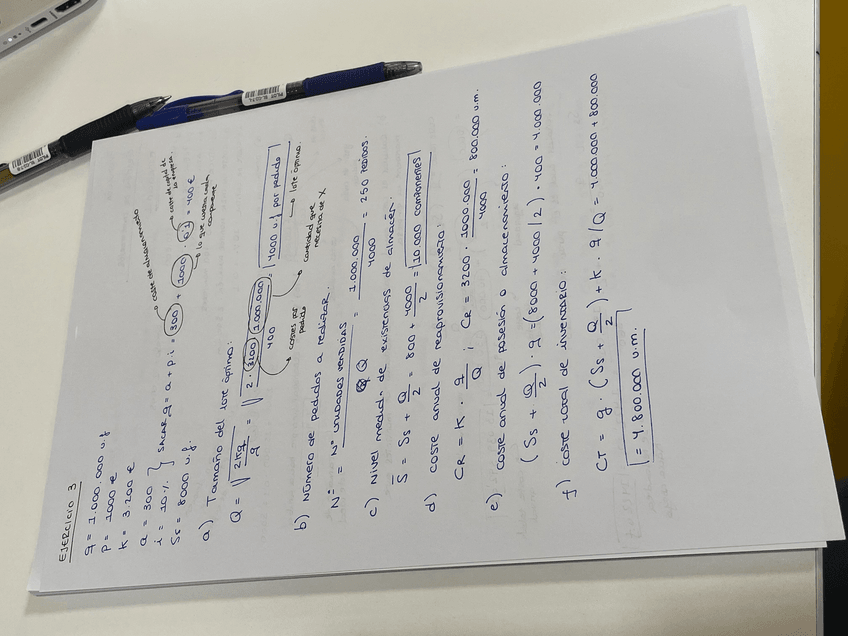 EJERCICIO 3
q = 1.000.000 u.f
P = 1000 €
K = 3.200 €
a = 300
i = 10 %
} SACAR g = a + p.i = 300 + 1000 . 0'1 = 400 €
coste de almacenamiento
coste de capital de la empresa
lo que cuesta cada componente
Ss = 8000 u.f.
a) Tamaño del lote óptimo:
Q = √2Kq/g = √2 · 3200 1.000.000/400 = 4000 u.f por pedido
→ lote óptimo
costes por pedido
cantidad que necesita de X
b) Número de pedidos a realizar.
Nº = Nº unidades vendidas/Q = 1.000.000/4000 = 250 pedidos.
c) Nivel medio de existencias de almacén.
S = Ss + Q/2 = 800 + 4000/2 = 10.000 componentes
d) coste anual de reaprovisionamiento:
CR = K · q/Q ; CR = 3200 · 1000.000/4000 = 800.000 u.m.
e) coste anual de posesión o almacenamiento:
(Ss + Q/2) · g = (8000 + 4000/2) · 400 = 4.000.000
f) coste total de inventario:
CT = g · (Ss + Q/2) + K · q/Q = 4.000.000 + 800.000
= 4.800.000 u.m.